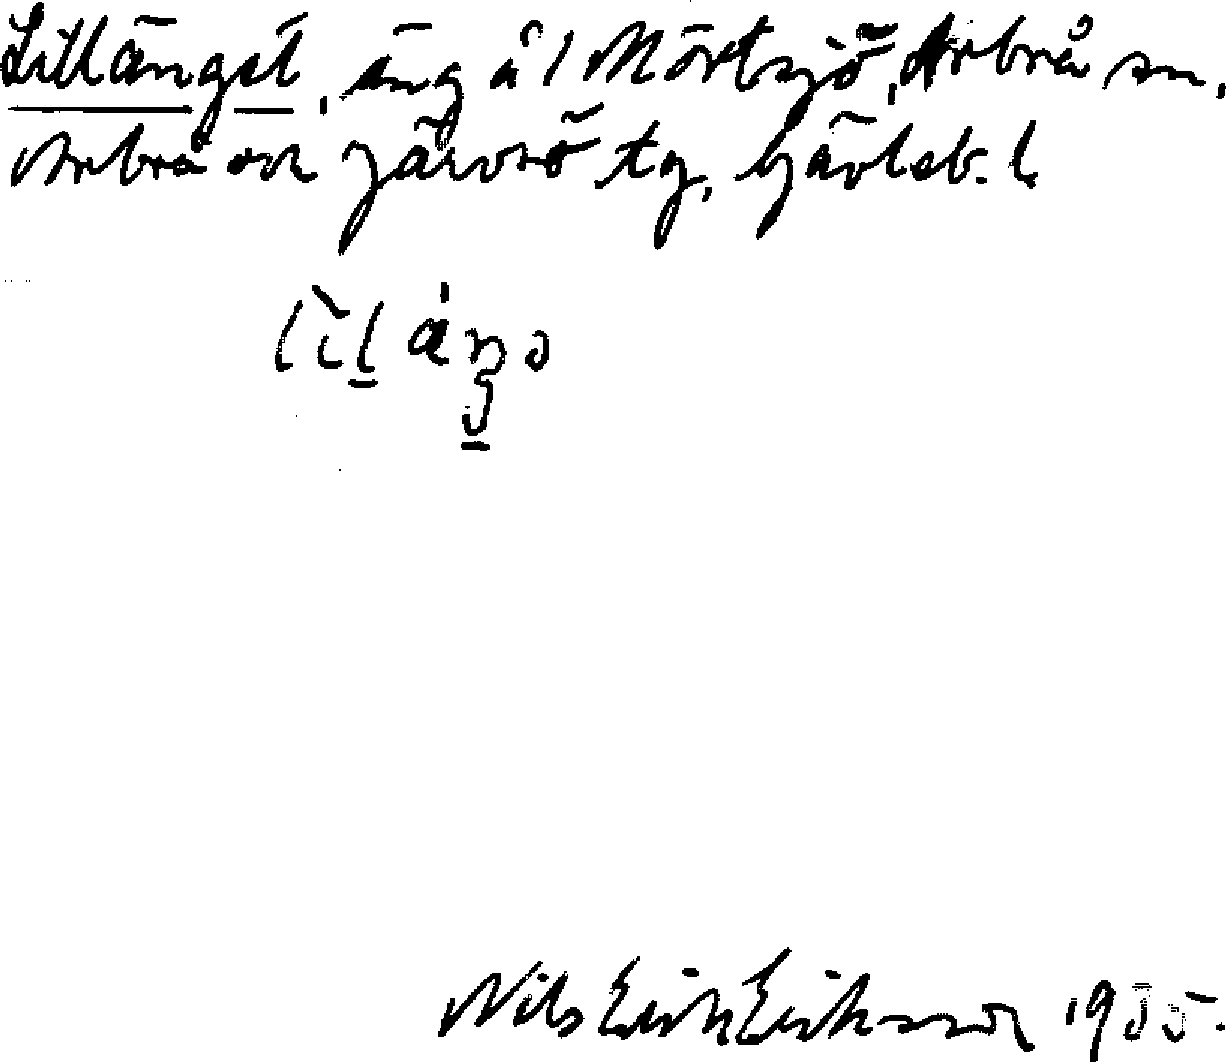 Lillängst, äng å 1 Mörtsjö, Arbrå sn,
Arbrå och Järvsö tg, Gävleb. l.
Nils Erik Eriksson 1935.